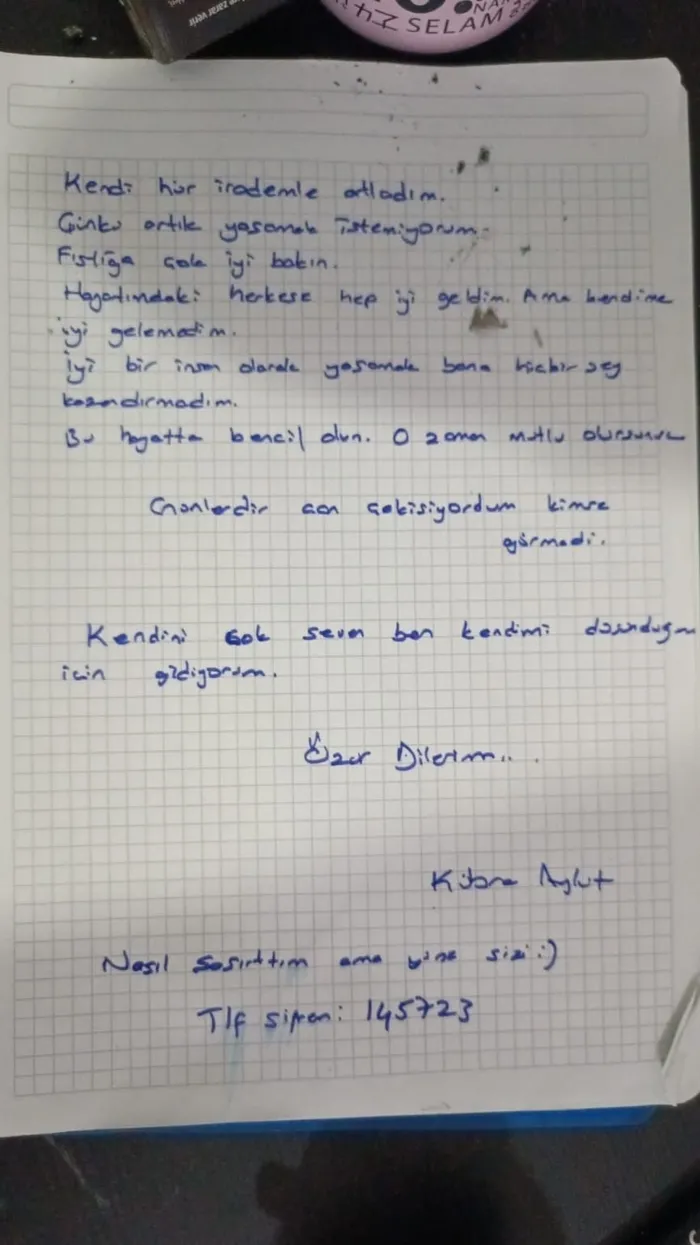 SELAM
Kendi hür irademle atladım.
Çünkü artık yaşamak istemiyorum.
Fıstığa çok iyi bakın.
Hayatımdaki herkese hep iyi geldim. Ama kendime
iyi gelemedim.
İyi bir insan olarak yaşamak bana hiçbir şey
kazandırmadım.
Bu hayatta bencil olun. O zaman mutlu olursunuz
Günlerdir can çekişiyordum kimse
görmedi.
Kendini çok seven ben kendimi
için gidiyorum.
Özür Dilerim...
Kübra Aykut
Nasıl şaşırttım ama yine sizi :)
Tlf şifren: 145723